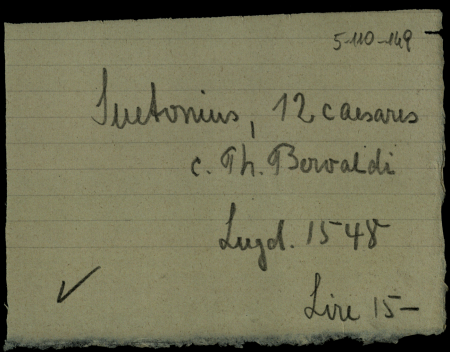 5-110-149
Suetonius, 12 caesares
c. Ph. Bervaldi
Lugd. 1548
Lire 15—